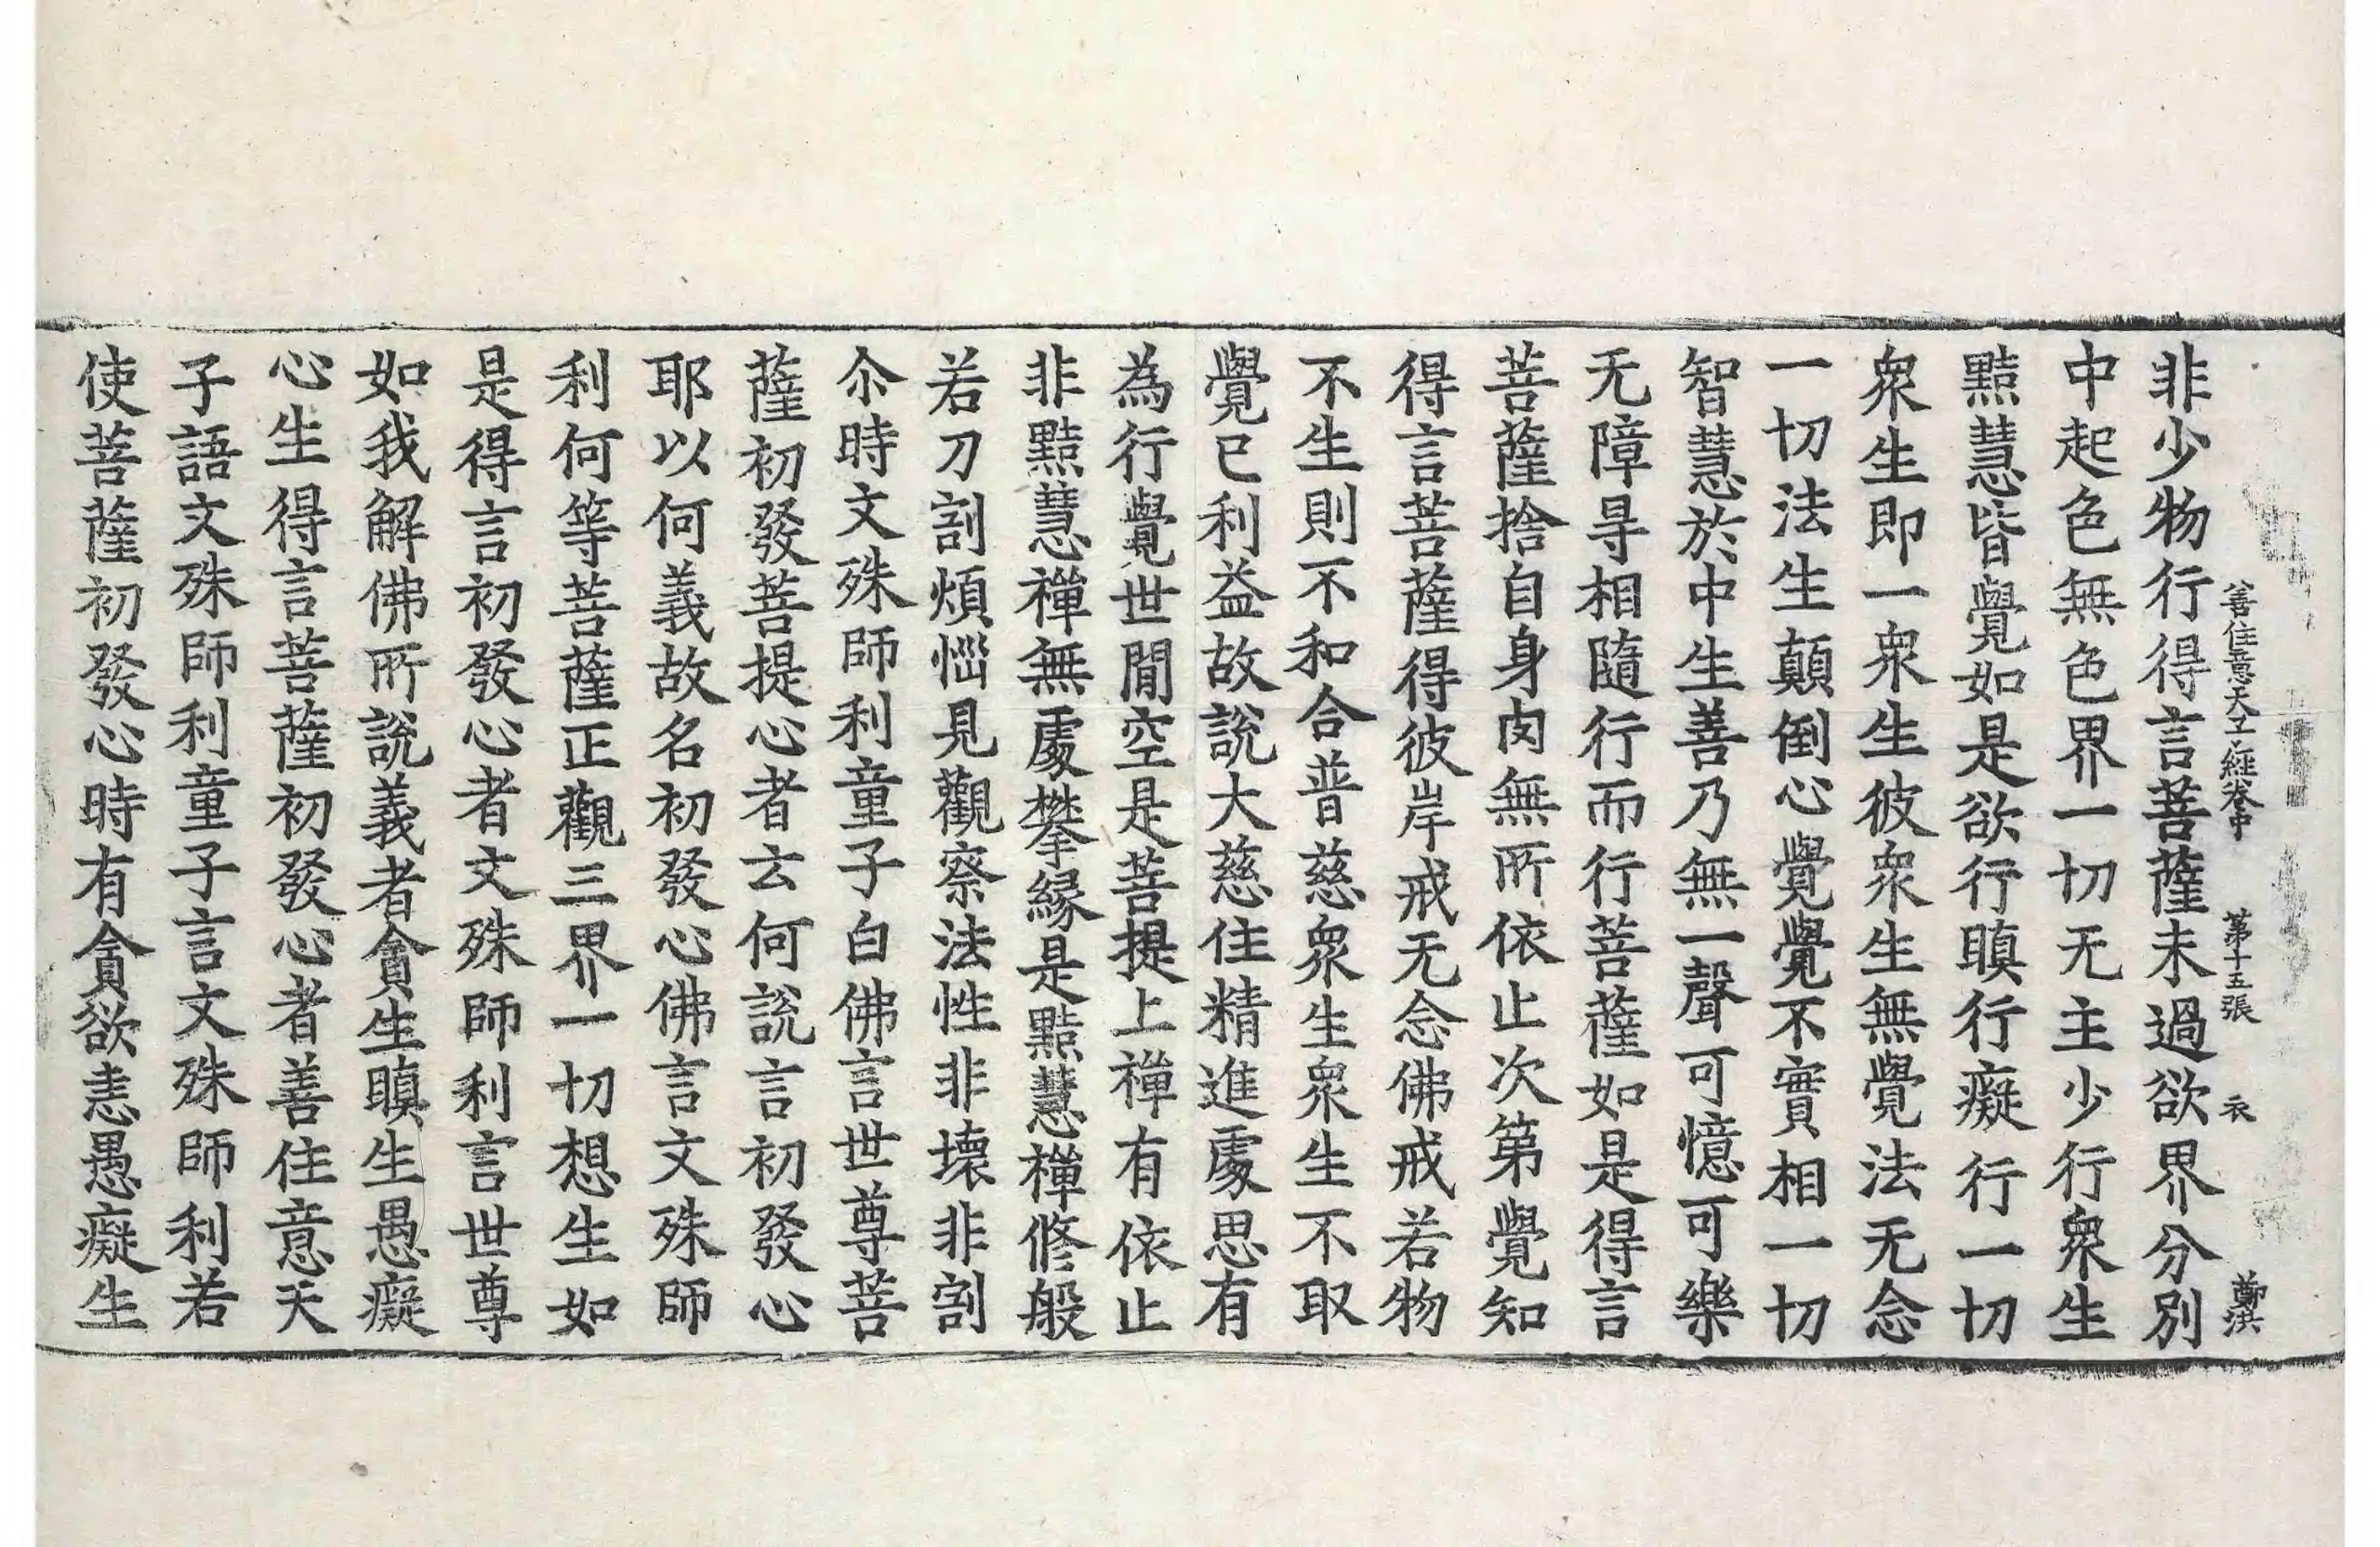 善住意天子經卷中 第十五張 衣 鄭洪
非少物行得言菩薩未過欲界分別
中起色無色界一切无主少行衆生
黠慧皆覺如是欲行瞋行癡行一切
衆生即一衆生彼衆生無覺法无念
一切法生顛倒心覺覺不實相一切
智慧於中生善乃無一聲可憶可樂
无障㝵相隨行而行菩薩如是得言
菩薩捨自身肉無所依止次第覺知
得言菩薩得彼岸戒无念佛戒若物
不生則不和合普慈衆生衆生不取
覺已利益故說大慈住精進處思有
為行覺世閒空是菩提上禪有依止
非黠慧禪無處攀縁是黠慧禪修般
若刀割煩惱見觀察法性非壞非割
尒時文殊師利童子白佛言世尊菩
薩初發菩提心者云何說言初發心
耶以何義故名初發心佛言文殊師
利何等菩薩正觀三界一切想生如
是得言初發心者文殊師利言世尊
如我解佛所說義者貪生瞋生愚癡
心生得言菩薩初發心者善住意天
子語文殊師利童子言文殊師利若
使菩薩初發心時有貪欲恚愚癡生